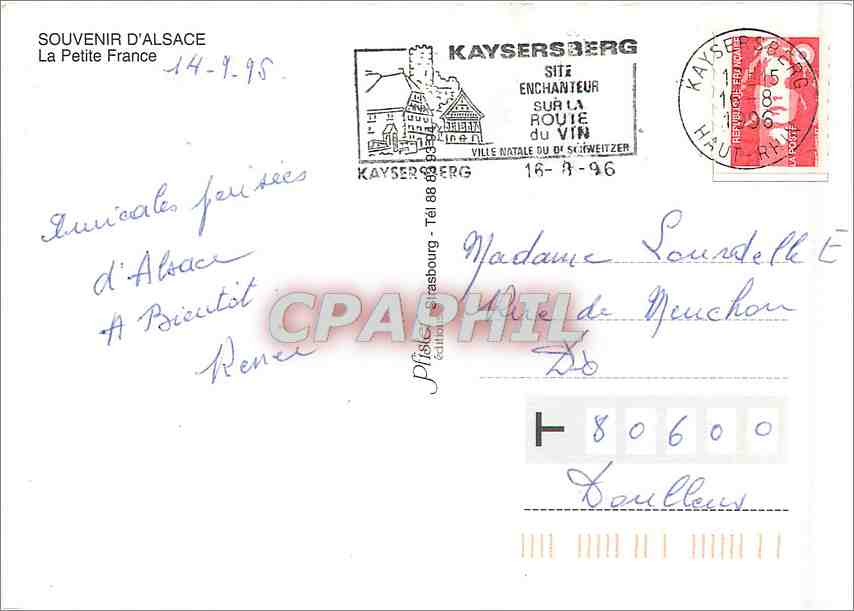 SOUVENIR D'ALSACE
La Petite France
14-9-95
KAYSERSBERG
SITE
ENCHANTEUR
SUR LA
ROUTE
du VIN
VILLE NATALE DU Dr SCHWEITZER
KAYSERSBERG 16-8-96
KAYSERSBERG
16-8
1996
HAUT-RHIN
LA POSTE
Amicales pensées
d'Alsace
A Bientôt
Renée
Pfister
éditions Strasbourg - Tél 88 83 93 94
CPAPHIL
Madame Lourdelle E
Rue de Menchon
80600
Doullens